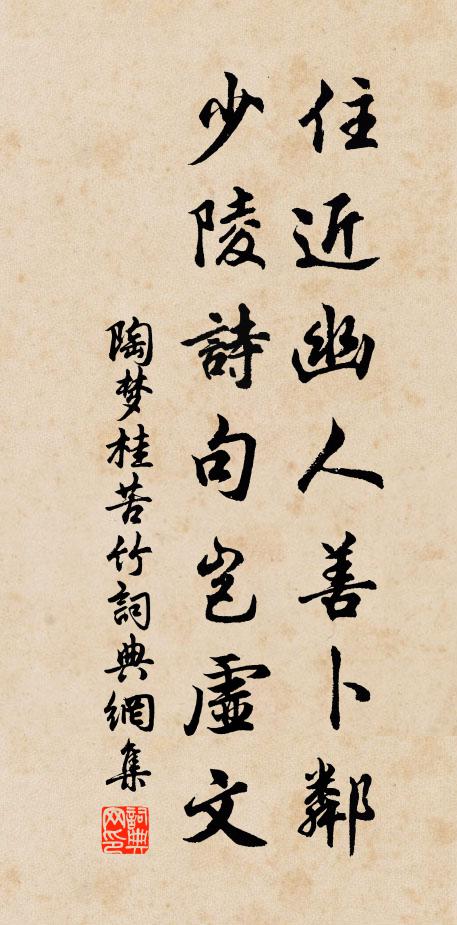 住近幽人善卜鄰
少陵詩句豈虛文
陶梦桂苦竹詞典網集
詞典网印